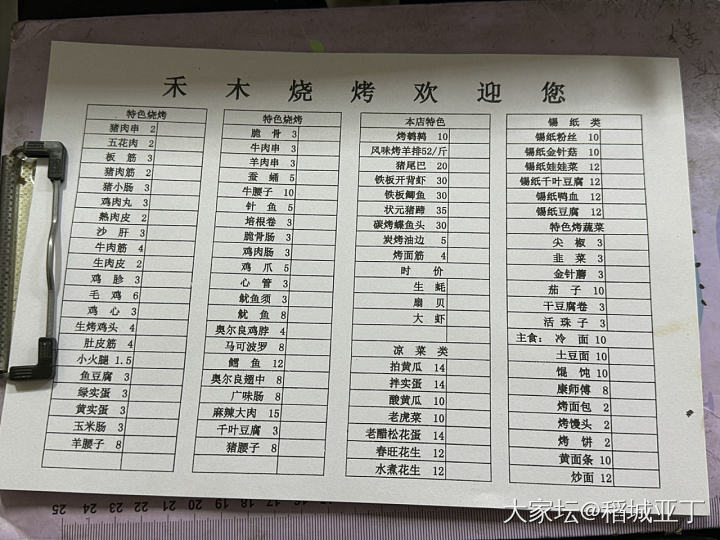 禾木烧烤欢迎您
特色烧烤
猪肉串 2
五花肉 2
板筋 3
猪肉筋 2
猪小肠 3
鸡肉丸 3
熟肉皮 2
沙肝 3
牛肉筋 4
生肉皮 2
鸡胗 3
毛鸡 6
鸡心 3
生烤鸡头 4
肚皮筋 4
小火腿 1.5
鱼豆腐 3
绿实蛋 3
黄实蛋 3
玉米肠 3
羊腰子 8
特色烧烤
脆骨 3
牛肉串 3
羊肉串 3
蚕蛹 5
牛腰子 10
针鱼 5
培根卷 3
脆骨肠 3
鸡肉肠 3
鸡爪 5
心管 3
鱿鱼须 3
鱿鱼 8
奥尔良鸡脖 4
马可波罗 8
鳕鱼 12
奥尔良翅中 8
广味肠 8
麻辣大肉 15
千叶豆腐 3
猪腰子 8
本店特色
烤鹌鹑 10
风味烤羊排52/斤
猪尾巴 20
铁板开背虾 30
铁板鲫鱼 30
状元猪蹄 35
碳烤鲽鱼头 30
炭烤油边 5
烤面筋 4
时价
生蚝
扇贝
大虾
凉菜类
拍黄瓜 14
拌实蛋 14
酸黄瓜 10
老虎菜 10
老醋松花蛋 14
春旺花生 12
水煮花生 12
锡纸类
锡纸粉丝 10
锡纸金针菇 10
锡纸娃娃菜 12
锡纸千叶豆腐 12
锡纸鸭血 12
锡纸豆腐 12
特色烤蔬菜
尖椒 3
韭菜 3
金针蘑 3
茄子 10
干豆腐卷 3
活珠子 3
主食：冷面 10
土豆面 10
馄饨 10
康师傅 8
烤面包 2
烤馒头 2
烤饼 2
黄面条 10
炒面 12
25 24 23 22 21 20 19 18
大家坛@稻城亚丁